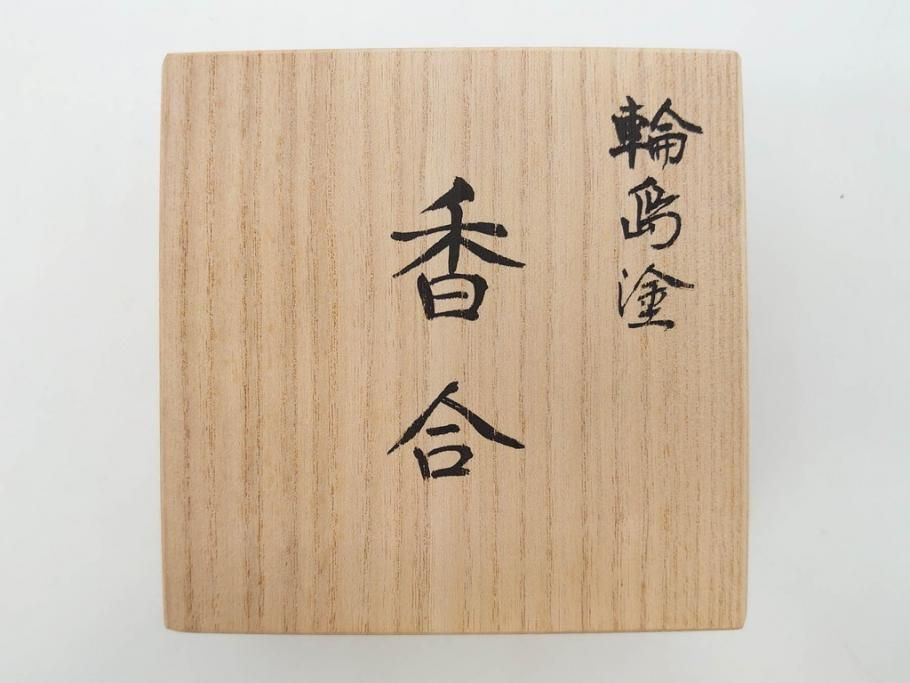 輪島塗
香合